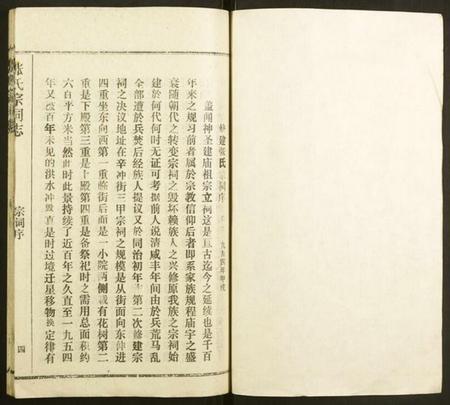 修建张氏宗祠序
盖闻神圣建庙祖宗立祠这是亘古迄今之延续也是千百
年来之规习前者属於宗教信仰后者即系家族规程庙宇之盛
衰随朝代之转变宗祠之毁坏赖族人之兴修原我族之宗祠始
建於何代何时无证可考据前人说清咸丰年间由於兵荒马乱
全部遭於兵焚后经族人提议又於同治初年第二次修建宗
祠之决议地址在辛冲街三甲宗祠之规模是从街面向东伸进
四重坐东向西第一重临街后面是一小院两侧栽有花树第二
重是下殿第三重是上殿第四重是备祭祀时之需用总面积约
六百平方米当然此时此景持续了近百年之久直至一九五四
年又 百年未见的洪水冲毁真是时过境迁星移物换定律有
张氏宗祠志
宗祠序
四